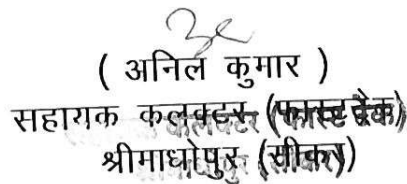 ( अनिल कुमार )
सहायक कलक्टर (फास्ट ट्रैक)
श्रीमाधोपुर (सीकर)